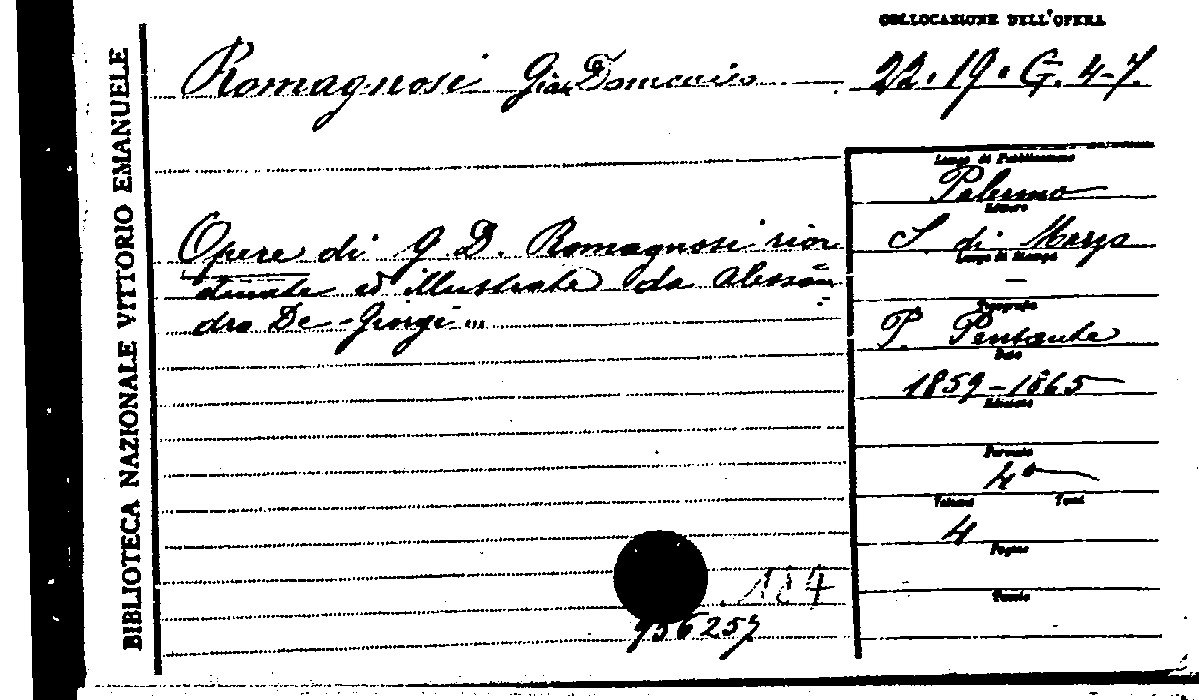 COLLOCAZIONE DELL'OPERA
BIBLIOTECA NAZIONALE VITTORIO EMANUELE
Romagnosi Gian Domenico
22.19.G.4-7
Opere di G D. Romagnosi rior
dinate ed illustrate da Alessan
dro De-Giorgi...
Luogo di Pubblicazione
Palermo
Editore
S di Marzo
Luogo di Stampa
—
Tipografia
P. Pensante
Data
1859-1865
Edizione
Formato
4°
Volumi Tomi
4
Pagine
Tavole
184
956257